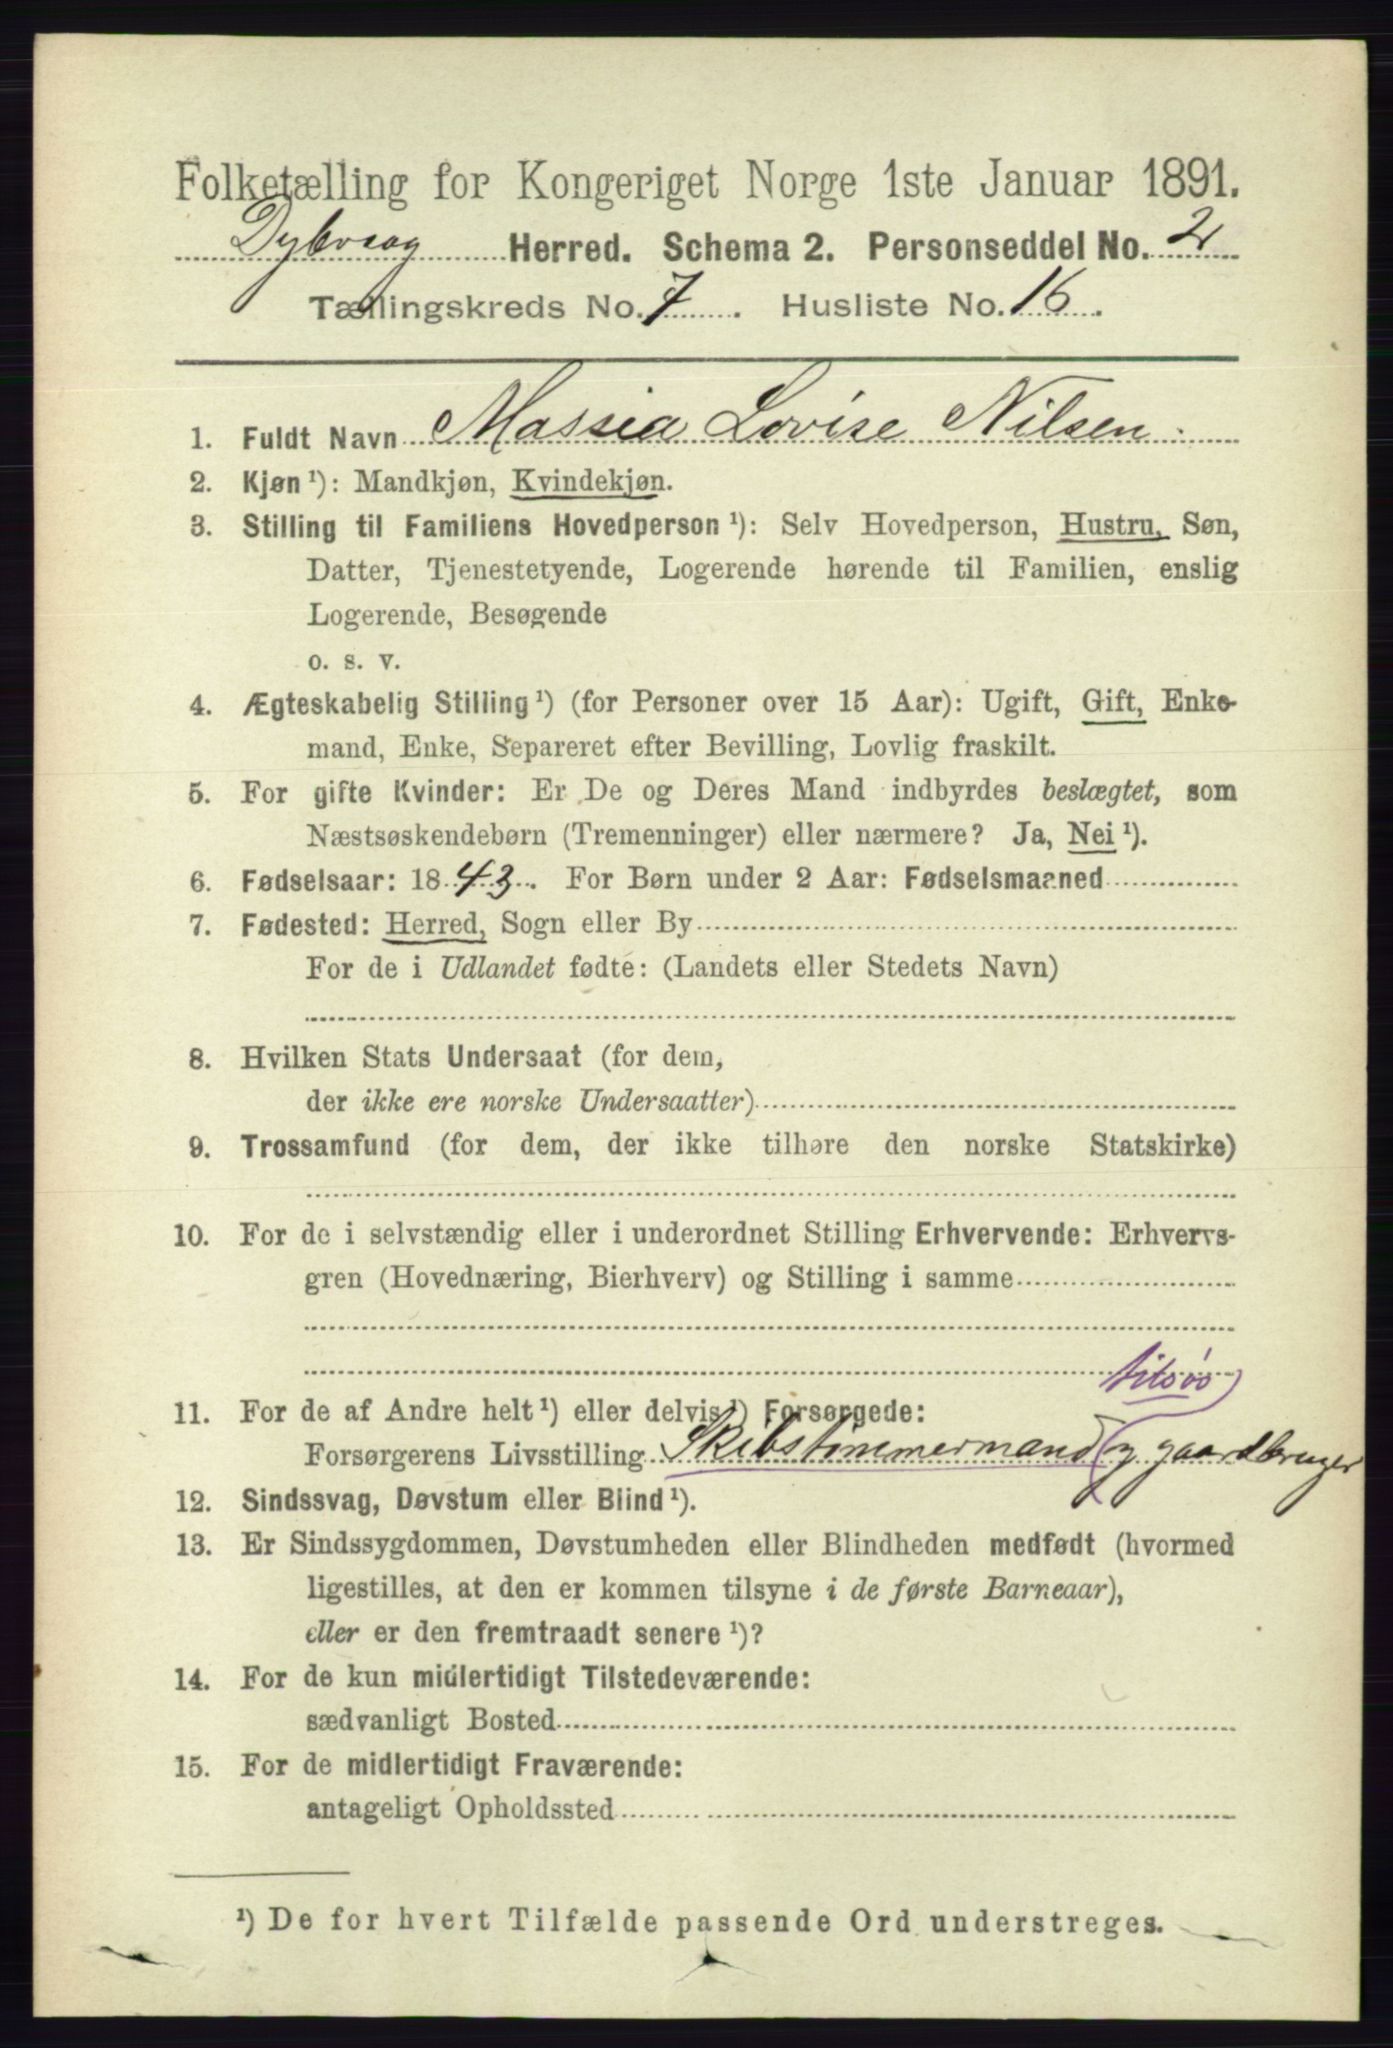 Folketælling for Kongeriget Norge 1ste Januar 1891.
Dybvaag Herred. Schema 2. Personseddel No. 2
Tællingskreds No. 7. Husliste No. 16.
1. Fuldt Navn Massia Lovise Nilsen.
2. Kjøn ¹): Mandkjøn, Kvindekjøn.
3. Stilling til Familiens Hovedperson ¹): Selv Hovedperson, Hustru, Søn,
Datter, Tjenestetyende, Logerende hørende til Familien, enslig
Logerende, Besøgende
o. s. v.
4. Ægteskabelig Stilling ¹) (for Personer over 15 Aar): Ugift, Gift, Enke-
mand, Enke, Separeret efter Bevilling, Lovlig fraskilt.
5. For gifte Kvinder: Er De og Deres Mand indbyrdes beslægtet, som
Næstsøskendebørn (Tremenninger) eller nærmere? Ja, Nei ¹).
6. Fødselsaar: 1843. For Børn under 2 Aar: Fødselsmaaned
7. Fødested: Herred, Sogn eller By
For de i Udlandet fødte: (Landets eller Stedets Navn)
8. Hvilken Stats Undersaat (for dem,
der ikke ere norske Undersaatter)
9. Trossamfund (for dem, der ikke tilhøre den norske Statskirke)
10. For de i selvstændig eller i underordnet Stilling Erhvervende: Erhvervs-
gren (Hovednæring, Bierhverv) og Stilling i samme
11. For de af Andre helt ¹) eller delvis ¹) Forsørgede:
Forsørgerens Livsstilling Skibstømmermand (og gaardbruger
12. Sindssvag, Døvstum eller Blind ¹).
13. Er Sindssygdommen, Døvstumheden eller Blindheden medfødt (hvormed
ligestilles, at den er kommen tilsyne i de første Barneaar),
eller er den fremtraadt senere ¹)?
14. For de kun midlertidigt Tilstedeværende:
sædvanligt Bosted
15. For de midlertidigt Fraværende:
antageligt Opholdssted
¹) De for hvert Tilfælde passende Ord understreges.